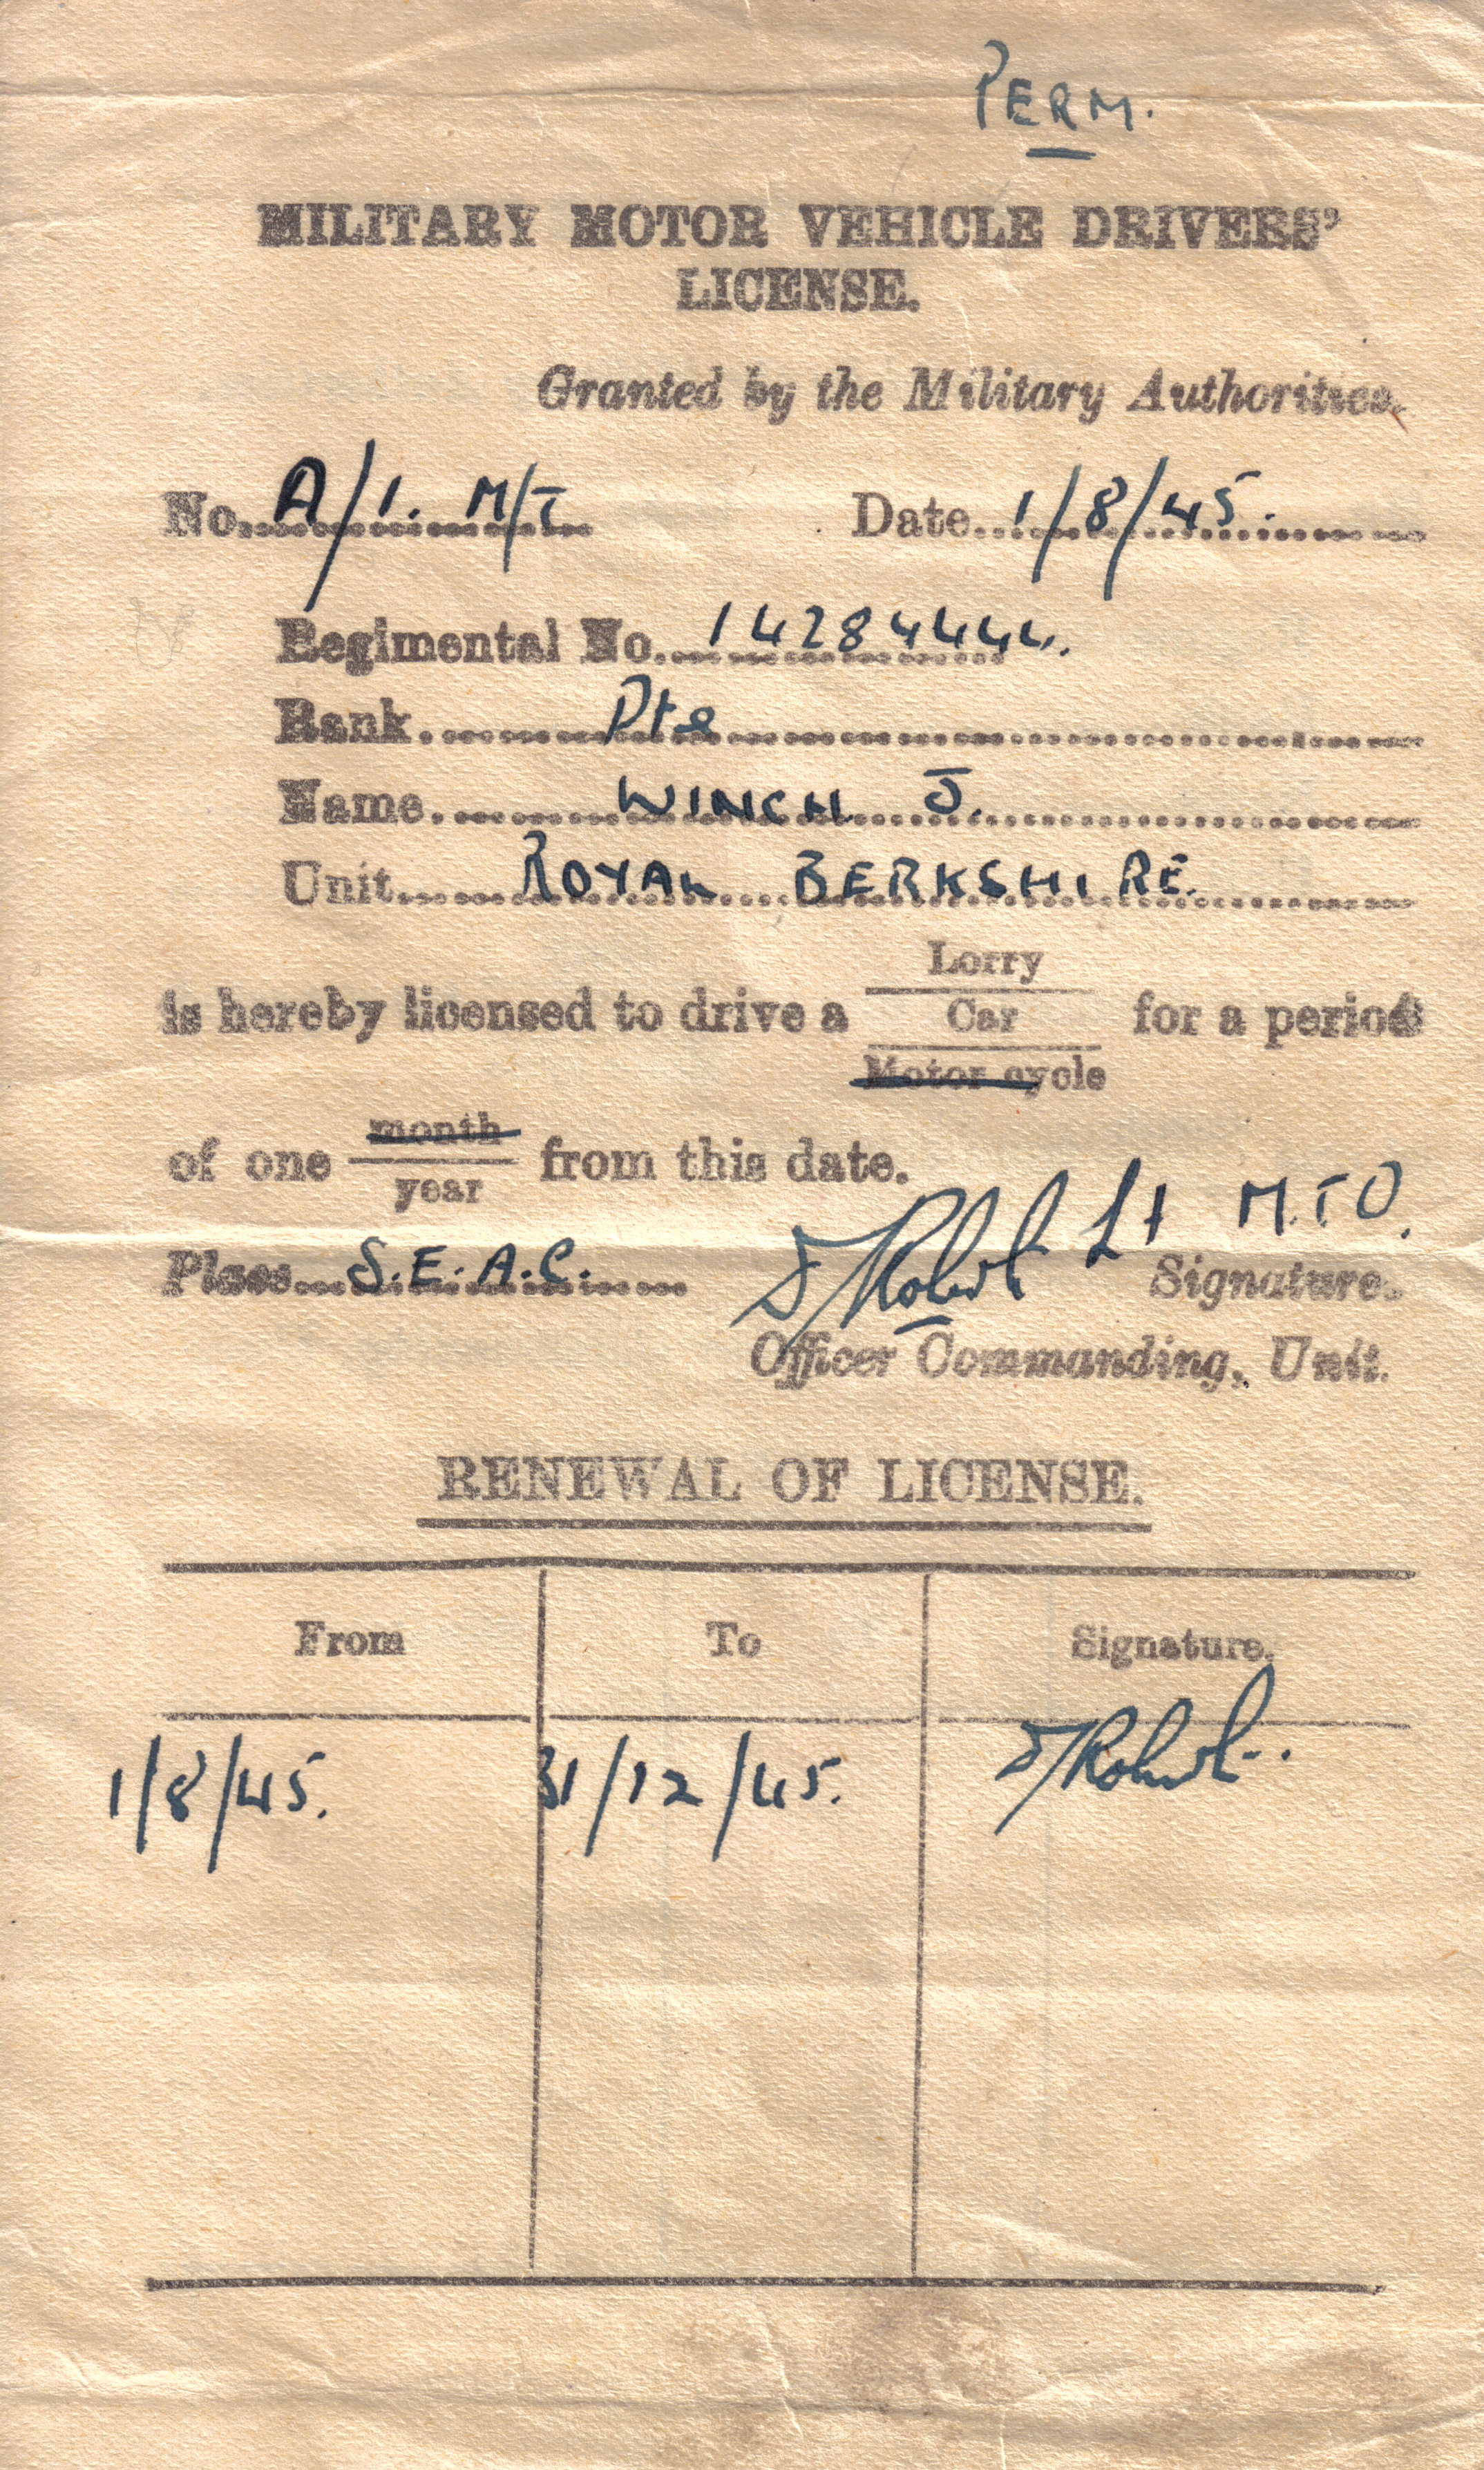 PERM.
MILITARY MOTOR VEHICLE DRIVERS'
LICENSE.
Granted by the Military Authorities.
No. A/1. M/T Date 1/8/45.
Regimental No. 14284444.
Rank. Pte
Name. WINCH J.
Unit. ROYAL BERKSHIRE.
Lorry
is hereby licensed to drive a Car for a period
Motor cycle
month
of one from this date.
year
Lt M.T.O.
Place S.E.A.C. Signature.
Officer Commanding, Unit.
RENEWAL OF LICENSE.
From To Signature.
1/8/45. 31/12/45.